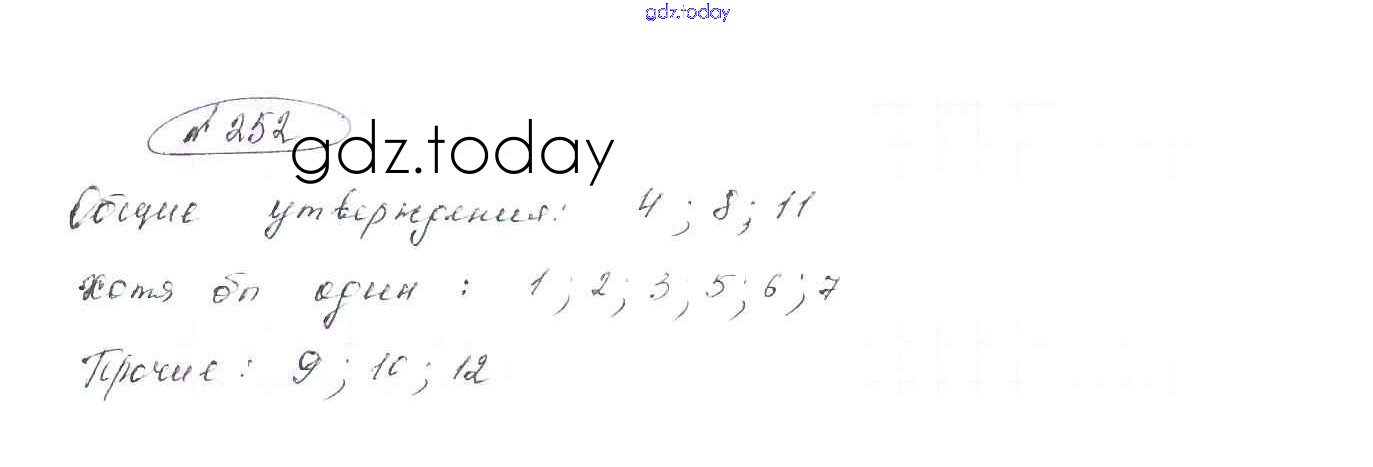 gdz.today
№ 252
gdz.today
Общие утверждения: 4 ; 8 ; 11
хотя бы один : 1 ; 2 ; 3 ; 5 ; 6 ; 7
Прочие : 9 ; 10 ; 12